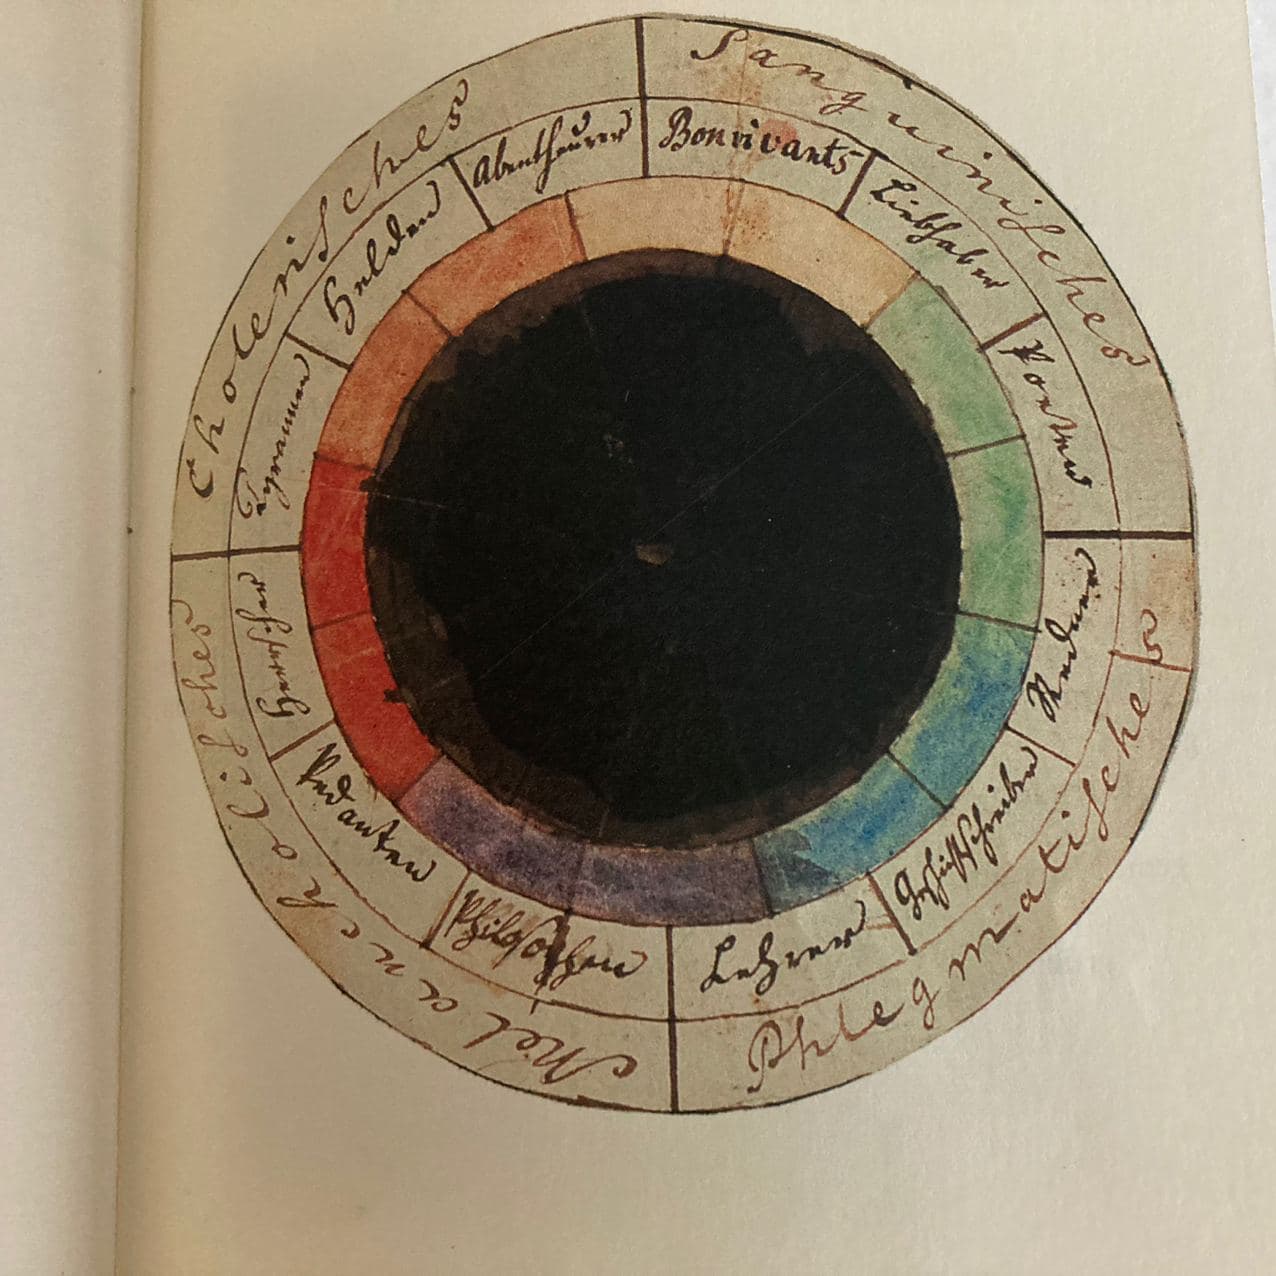 Cholerisches
Sanguinisches
Phlegmatisches
Melancholisches
Tyrannen
Helden
Abentheurer
Bonvivants
Liebhaber
Poeten
Redner
Geschichtschreiber
Lehrer
Philosophen
Pedanten
Herrscher